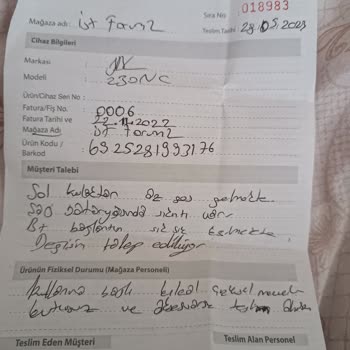 Mağaza adı: ist Forum2
Sıra No 018983
Teslim Tarihi 28.05.2023
Cihaz Bilgileri
Markası : JBL
Modeli : 230NC
Ürün/Cihaz Seri No :
Fatura/Fiş No. : 0006
Fatura Tarihi ve : 22.11.2022
Mağaza Adı : ist Forum2
Ürün Kodu /
Barkod : 6925281993176
Müşteri Talebi
Sol kulaktan az ses gelmekte.
Şarj bataryasında sıkıntı var.
Bt bağlantın sık sık
Değişim talep ediliyor
Ürünün Fiziksel Durumu (Mağaza Personeli)
kullanıma bağlı kılcal
kutusuz ve
Teslim Eden Müşteri
Teslim Alan Personel